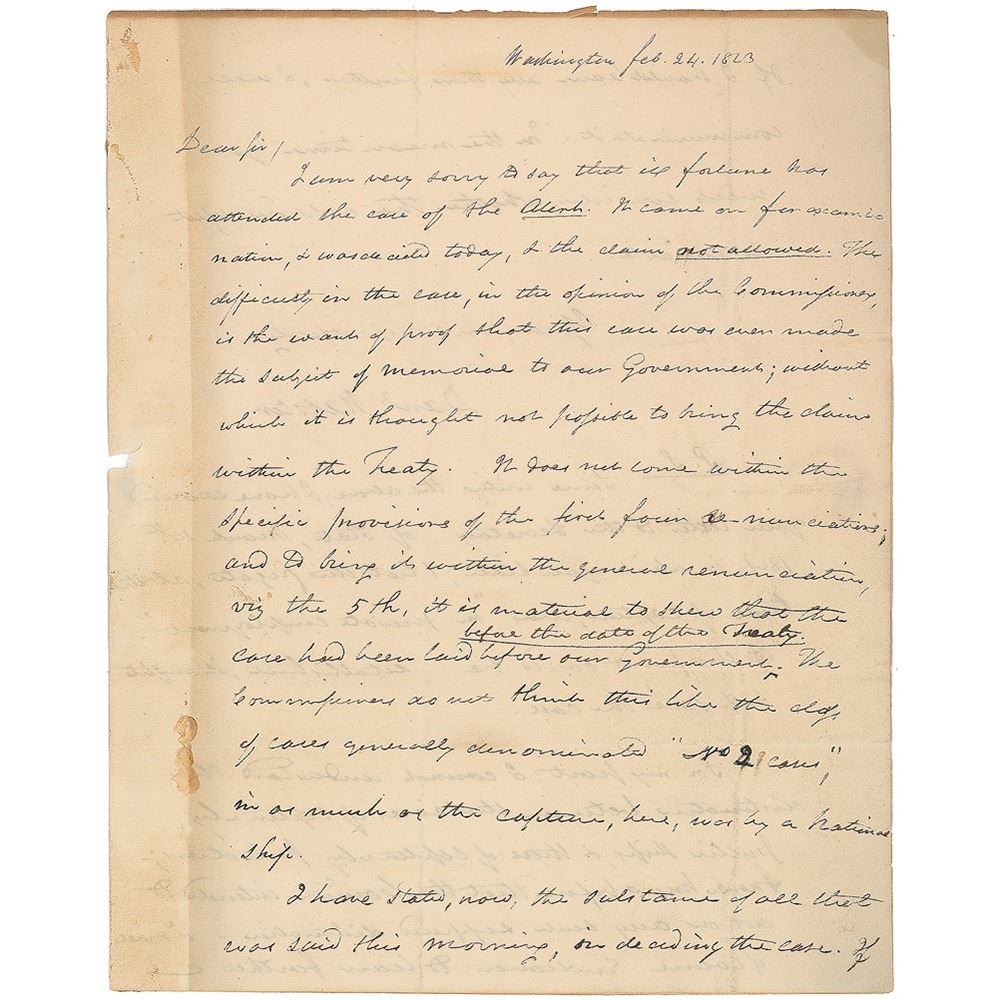 Washington feb. 24. 1823
Dear Sir/
I am very sorry to say that ill fortune has
attended the case of the Alert. It came on for exami-
nation, & was decided today, & the claim not allowed. The
difficulty in the case, in the opinion of the Commissioners,
is the want of proof that this case was ever made
the subject of memorial to our Government; without
which it is thought not possible to bring the claim
within the Treaty. It does not come within the
specific provisions of the first four re-nunciations;
and to bring it within the general renunciation,
viz the 5th, it is material to shew that the
before the date of the Treaty.
case had been laid before our Government. The
Commissioners do not think this like the class
of cases generally denominated "No 2 cases",
in as much as the capture, here, was by a National
ship.
I have stated, now, the substance of all that
was said this morning, in deciding the case. If